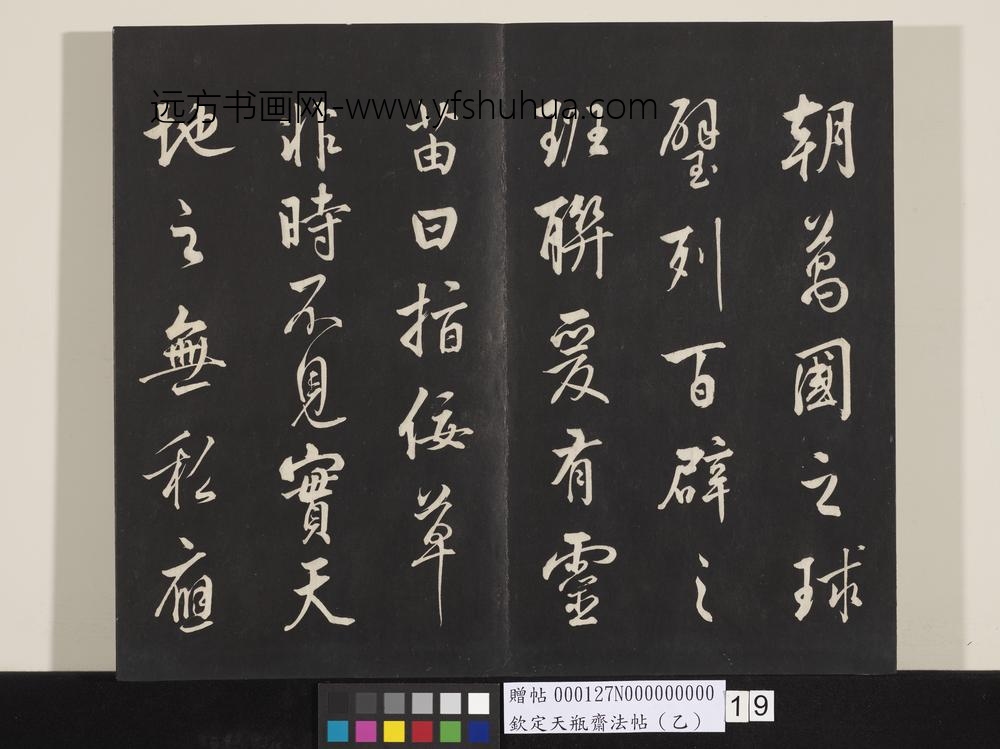 朝萬國之球
璧列百辟之
班聯爰有靈
苗曰指佞草
非時不見實天
地之無私應
远方书画网-www.yfshuhua.com
贈帖 000127N000000000
欽定天瓶齋法帖（乙）
19